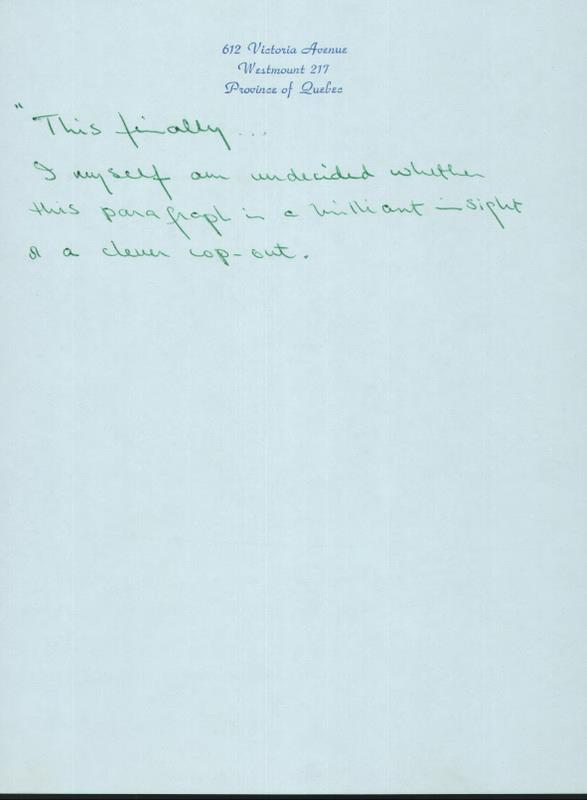 612 Victoria Avenue
Westmount 217
Province of Quebec
" This finally...
I myself am undecided whether
this paragraph is a brilliant insight
or a clever cop-out.